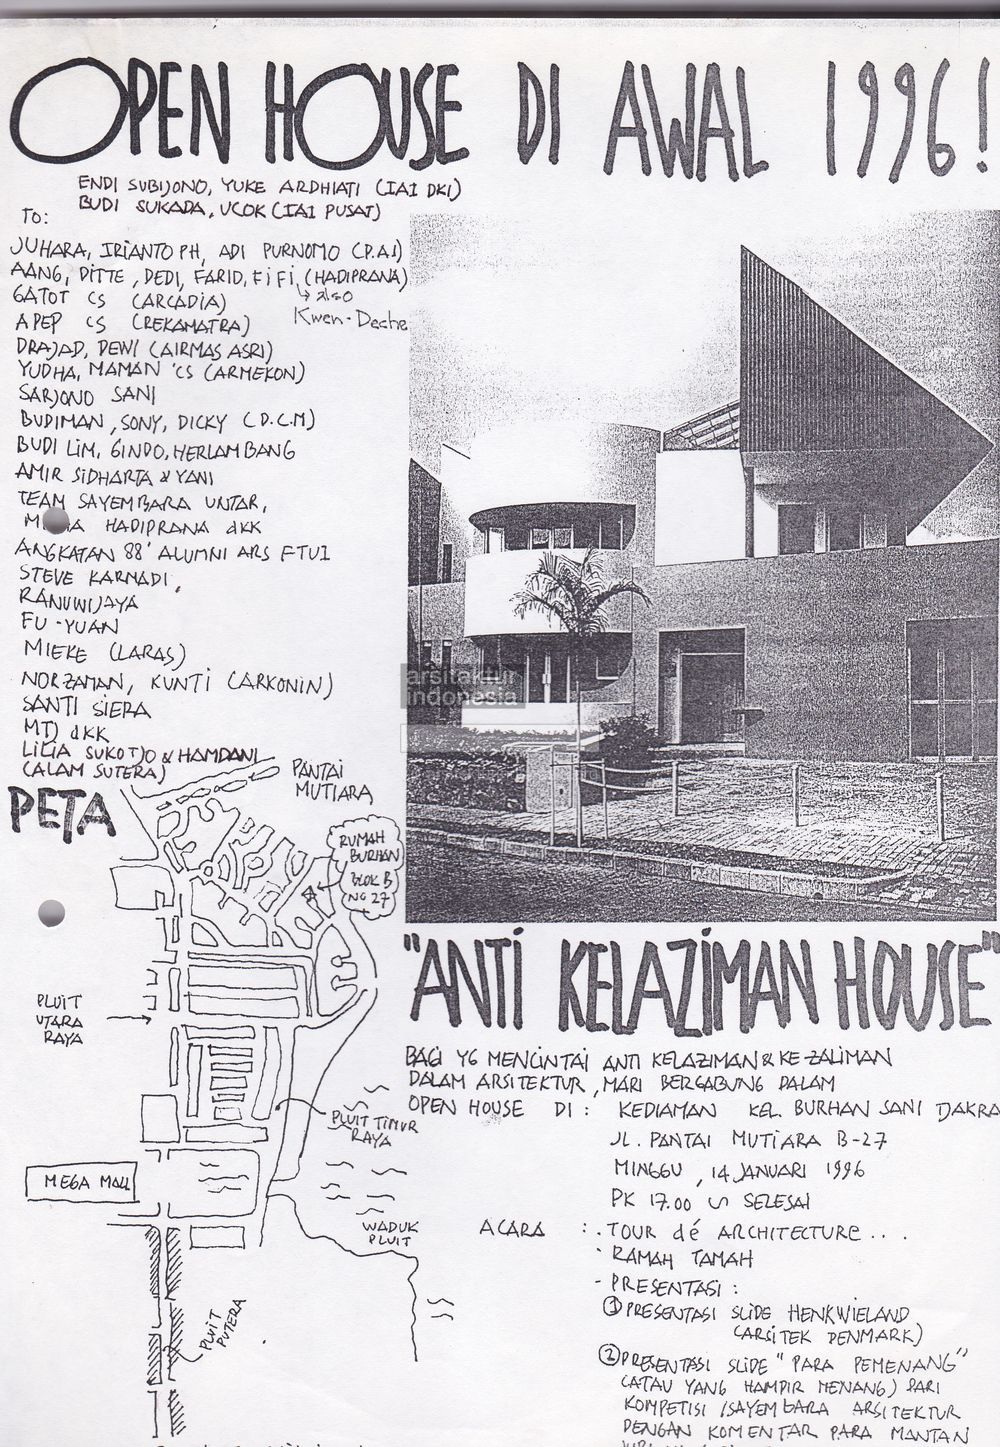 OPEN HOUSE DI AWAL 1996!
ENDI SUBIJONO, YUKE ARDHIATI (IAI DKI)
BUDI SUKADA, UCOK (IAI PUSAT)
TO:
JUHARA, IRIANTO PH, ADI PURNOMO (P.A.I)
AANG, DITTE, DEDI, FARID, FIFI, (HADIPRANA)
↳ also
Kwen-Deche
GATOT CS (ARCADIA)
APEP CS (REKAMATRA)
DRAJAD, DEWI (AIRMAS ASRI)
YUDHA, MAMAN 'CS (ARMEKON)
SARJONO SANI
BUDIMAN, SONY, DICKY (D.C.M)
BUDI LIM, GINDO, HERLAMBANG
AMIR SIDHARTA & YANI
TEAM SAYEMBARA UNTAR,
HADIPRANA dKK
ANGKATAN 88' ALUMNI ARS FTUI
STEVE KARNADI,
RANUWIJAYA
FU-YUAN
MIEKE (LARAS)
NORZAMAN, KUNTI (ARKONIN)
SANTI SIERA
MTD dKK
LILIA SUKOTJO & HAMDANI
(ALAM SUTERA)
arsitektur
indonesia
PETA
PANTAI
MUTIARA
RUMAH
BURHAN
BLOK B
NO 27
PLUIT
UTARA
RAYA
PLUIT TIMUR
RAYA
MEGA MALL
WADUK
PLUIT
PLUIT
PUTERA
"ANTI KELAZIMAN HOUSE"
BAGI YG MENCINTAI ANTI KELAZIMAN & KE-ZALIMAN
DALAM ARSITEKTUR, MARI BERGABUNG DALAM
OPEN HOUSE DI : KEDIAMAN KEL. BURHAN SANI TJAKRA
JL. PANTAI MUTIARA B-27
MINGGU, 14 JANUARI 1996
PK 17.00 ∽ SELESAI
ACARA : . TOUR dé ARCHITECTURE...
- RAMAH TAMAH
- PRESENTASI :
① PRESENTASI SLIDE HENKWIELAND
(ARSITEK DENMARK)
② PRESENTASI SLIDE "PARA PEMENANG"
(ATAU YANG HAMPIR MENANG) DARI
KOMPETISI /SAYEMBARA ARSITEKTUR
DENGAN KOMENTAR PARA MANTAN